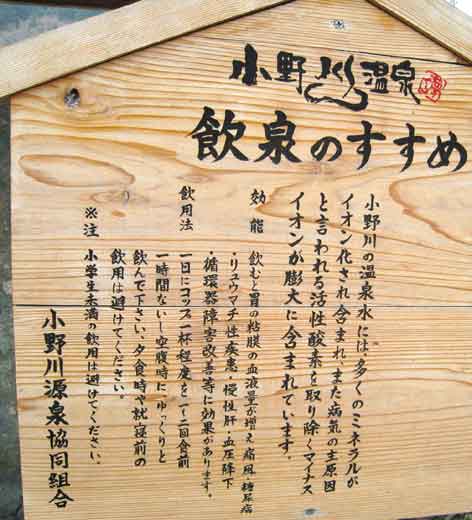 小野川温泉
飲泉のすすめ
小野川の温泉水には、多くのミネラルが
イオン化され含まれ、また病気の主原因
と言われる活性酸素を取り除くマイナス
イオンが膨大に含まれています。
効能 飲むと胃の粘膜の血液量が増え痛風・糖尿病
・リュウマチ性疾患・慢性肝・血圧降下
・循環器障害改善等に効果があります。
飲用法 一日にコップ一杯程度を一〜二回食前
一時間ないし空腹時にゆっくりと
飲んで下さい、夕食時や就寝前の
飲用は避けてください。
※注 小学生未満の飲用は避けてください。
小野川源泉協同組合